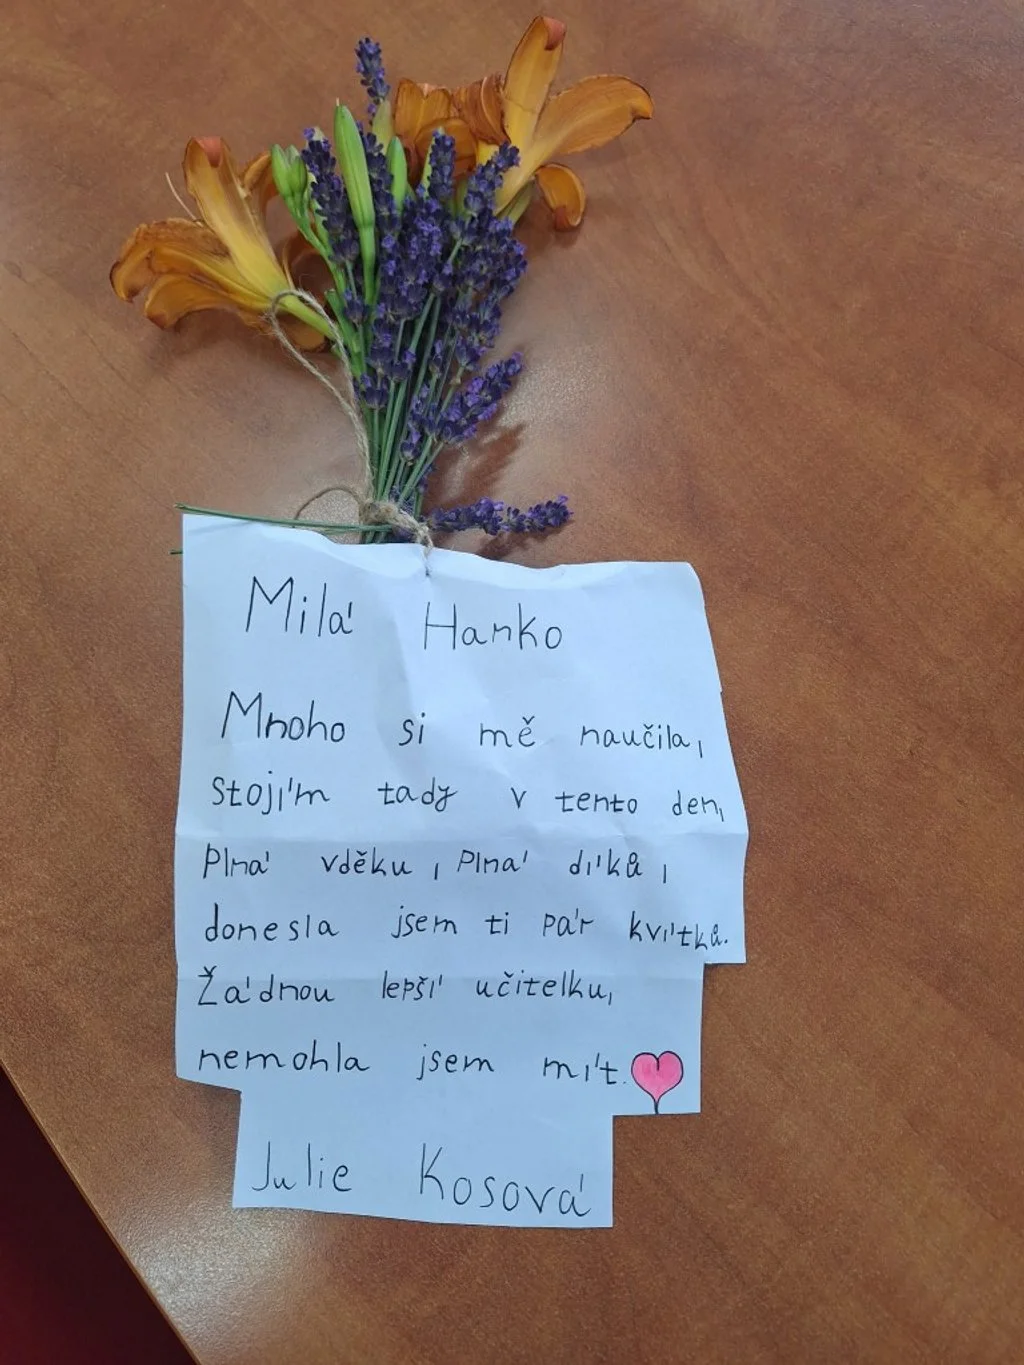 Milá Hanko
Mnoho si mě naučila,
stojím tady v tento den,
plná vděku, plná díků,
donesla jsem ti pár kvítků.
Žádnou lepší učitelku,
nemohla jsem mít.
Julie Kosová